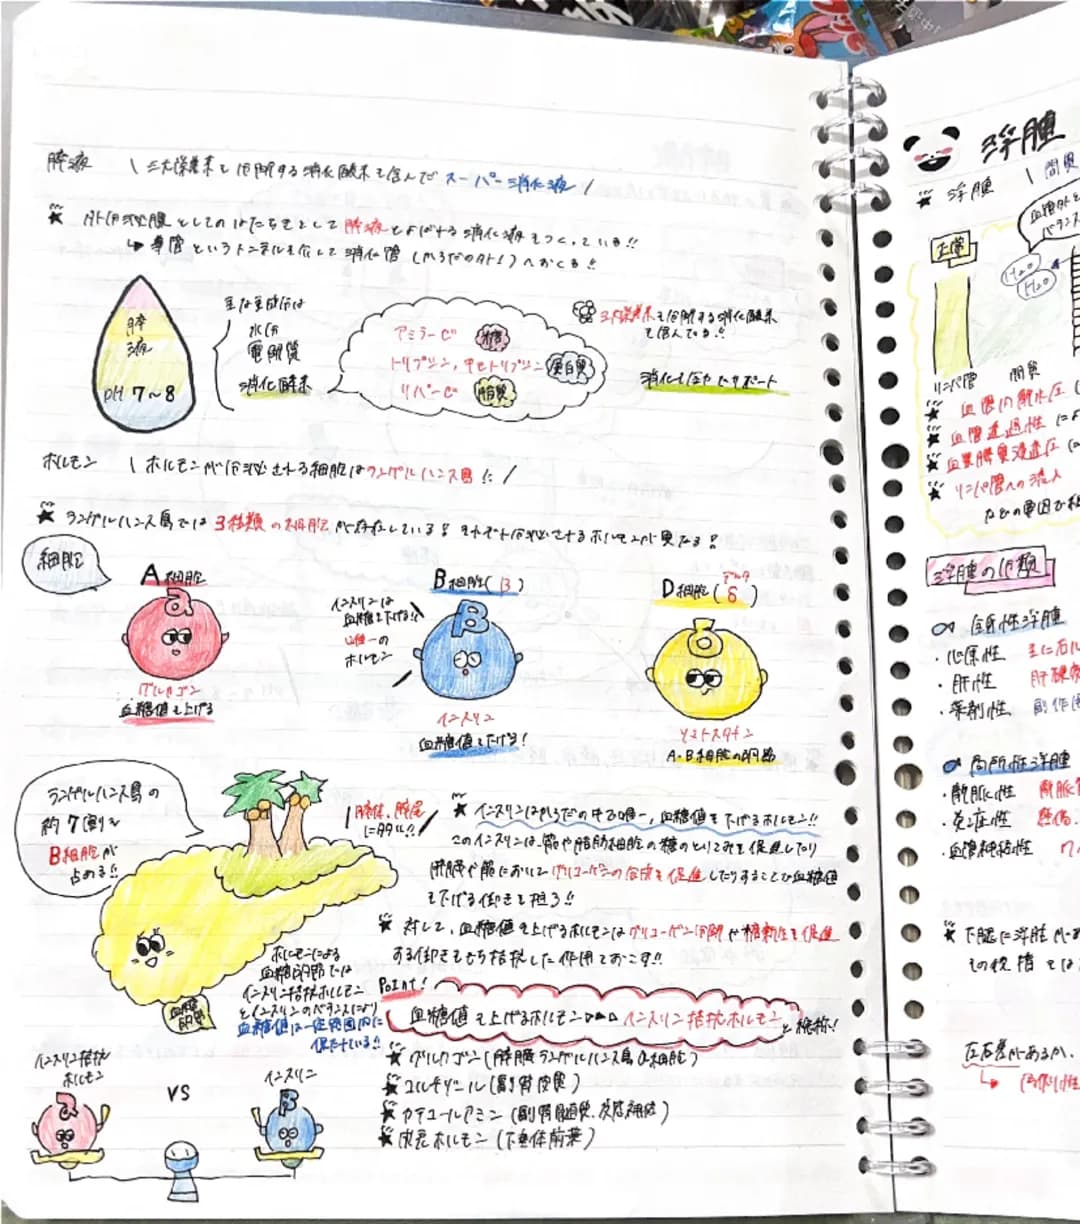 膵液 \ 三大栄養素を分解する消化酵素を含んだスーパー消化液 /
★ 外分泌腺としてのはたらきとして膵液とよばれる消化液をつくっている!!
↳ 導管というトンネルを通して消化管(からだの外!)へおくる!!
膵液
pH 7〜8
主な成分は
水分
電解質
消化酵素
アミラーゼ 糖質
トリプシン,キモトリプシン 蛋白質
リパーゼ 脂質
三大栄養素を分解する消化酵素
を含んでる!!
消化を強力にサポート
ホルモン \ ホルモンが分泌される細胞はランゲルハンス島!! /
★ ランゲルハンス島では3種類の細胞が存在している! それぞれ分泌させるホルモンが異なる!
細胞
A細胞
α
グルカゴン
血糖値を上げる
B細胞(β)
インスリンは
血糖を下げる
唯一の
ホルモン
β
インスリン
血糖値を下げる!
D細胞(δ)
デルタ
δ
ソマトスタチン
A・B細胞の調節
ランゲルハンス島の
約7割を
B細胞が
占める!!
膵体、膵尾
に多い!!
★ インスリンはからだの中で唯一、血糖値を下げるホルモン!!
このインスリンは、筋や脂肪細胞の糖のとりこみを促進したり
肝臓や筋において グリコーゲンの合成を促進したりすることで血糖値
を下げる働きを担う!!
★ 対して、血糖値を上げるホルモンはグリコーゲン分解や糖新生を促進
する働きをもち拮抗した作用をおこす!!
Point!
血糖値を上げるホルモン▷▷▷ インスリン拮抗ホルモン と総称!
★ グルカゴン(膵臓ランゲルハンス島α細胞)
★ コルチゾール(副腎皮質)
★ カテコールアミン(副腎髄質、交感神経)
★ 成長ホルモン(下垂体前葉)
ホルモンによる
血糖調節では
インスリン拮抗ホルモン
とインスリンのバランスにより
血糖値は一定範囲内に
保たれている!!
血糖
調節
インスリン拮抗
ホルモン
VS
インスリン
α
β
浮腫
★ 浮腫 \ 間質
血管外と
バランス
正常
H2O
H2O
リンパ管 間質
★ 血管内静水圧
★ 血管透過性
★ 血漿膠質浸透圧
★ リンパ管への流入
などの要因で
浮腫の分類
全身性浮腫
・心原性 主に右心
・肝性 肝硬変
・薬剤性 副作用
局所性浮腫
・静脈性 静脈
・炎症性
・血管神経性
★ 下腿に浮腫が
その程度は
左右差があるか、